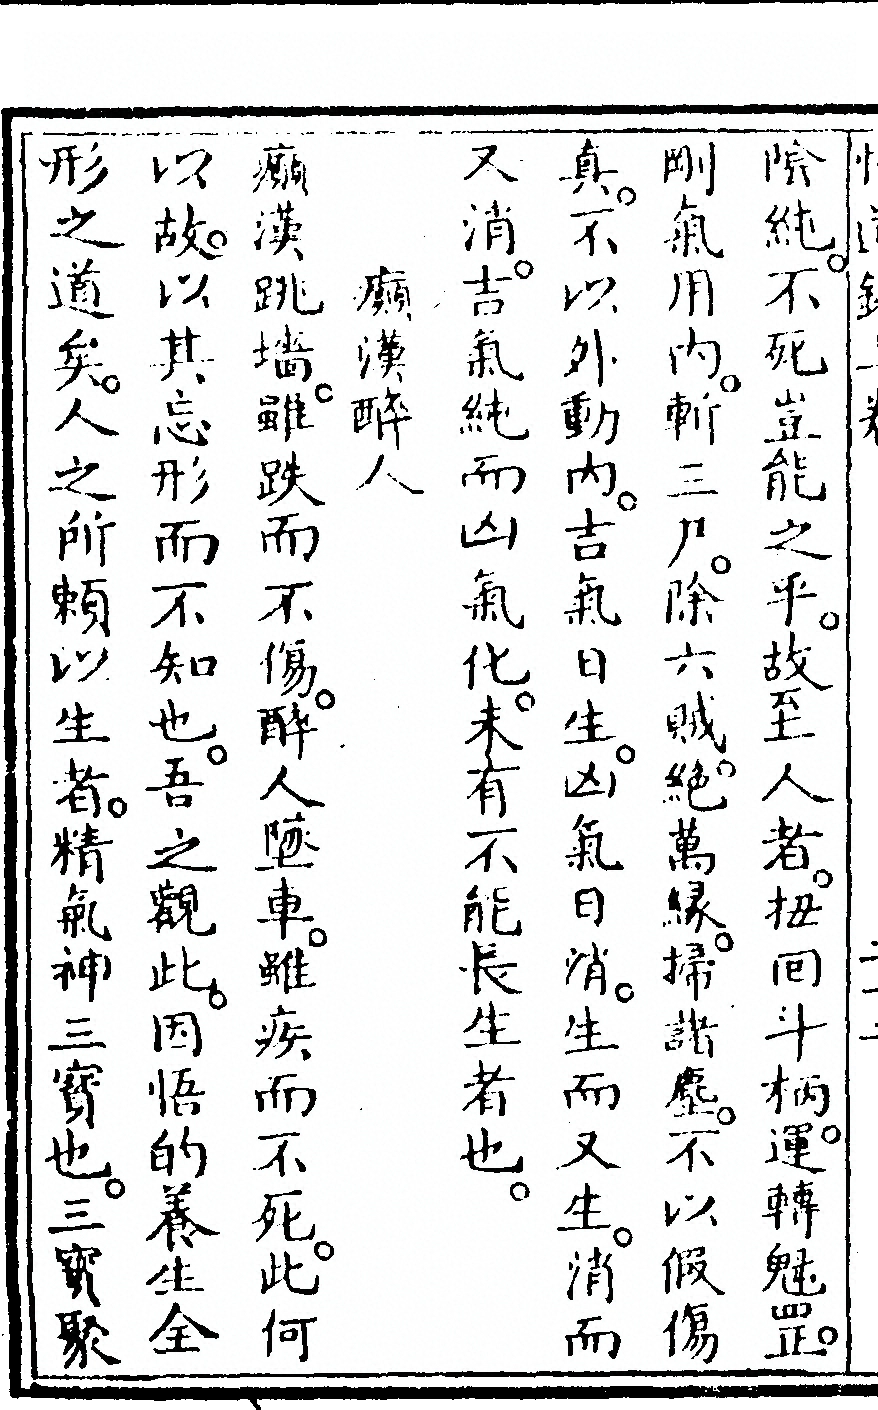 陰純。不死豈能之乎。故至人者。扭回斗柄。運轉魁罡。
剛氣用內。斬三尸。除六賊。絕萬緣。掃諸塵。不以假傷
真。不以外動內。吉氣日生。凶氣日消。生而又生。消而
又消。吉氣純而凶氣化。未有不能長生者也。
癲漢醉人
癲漢跳墻。雖跌而不傷。醉人墜車。雖疾而不死。此何
以故。以其忘形而不知也。吾之觀此。因悟的養生全
形之道矣。人之所賴以生者。精氣神三寶也。三寶聚